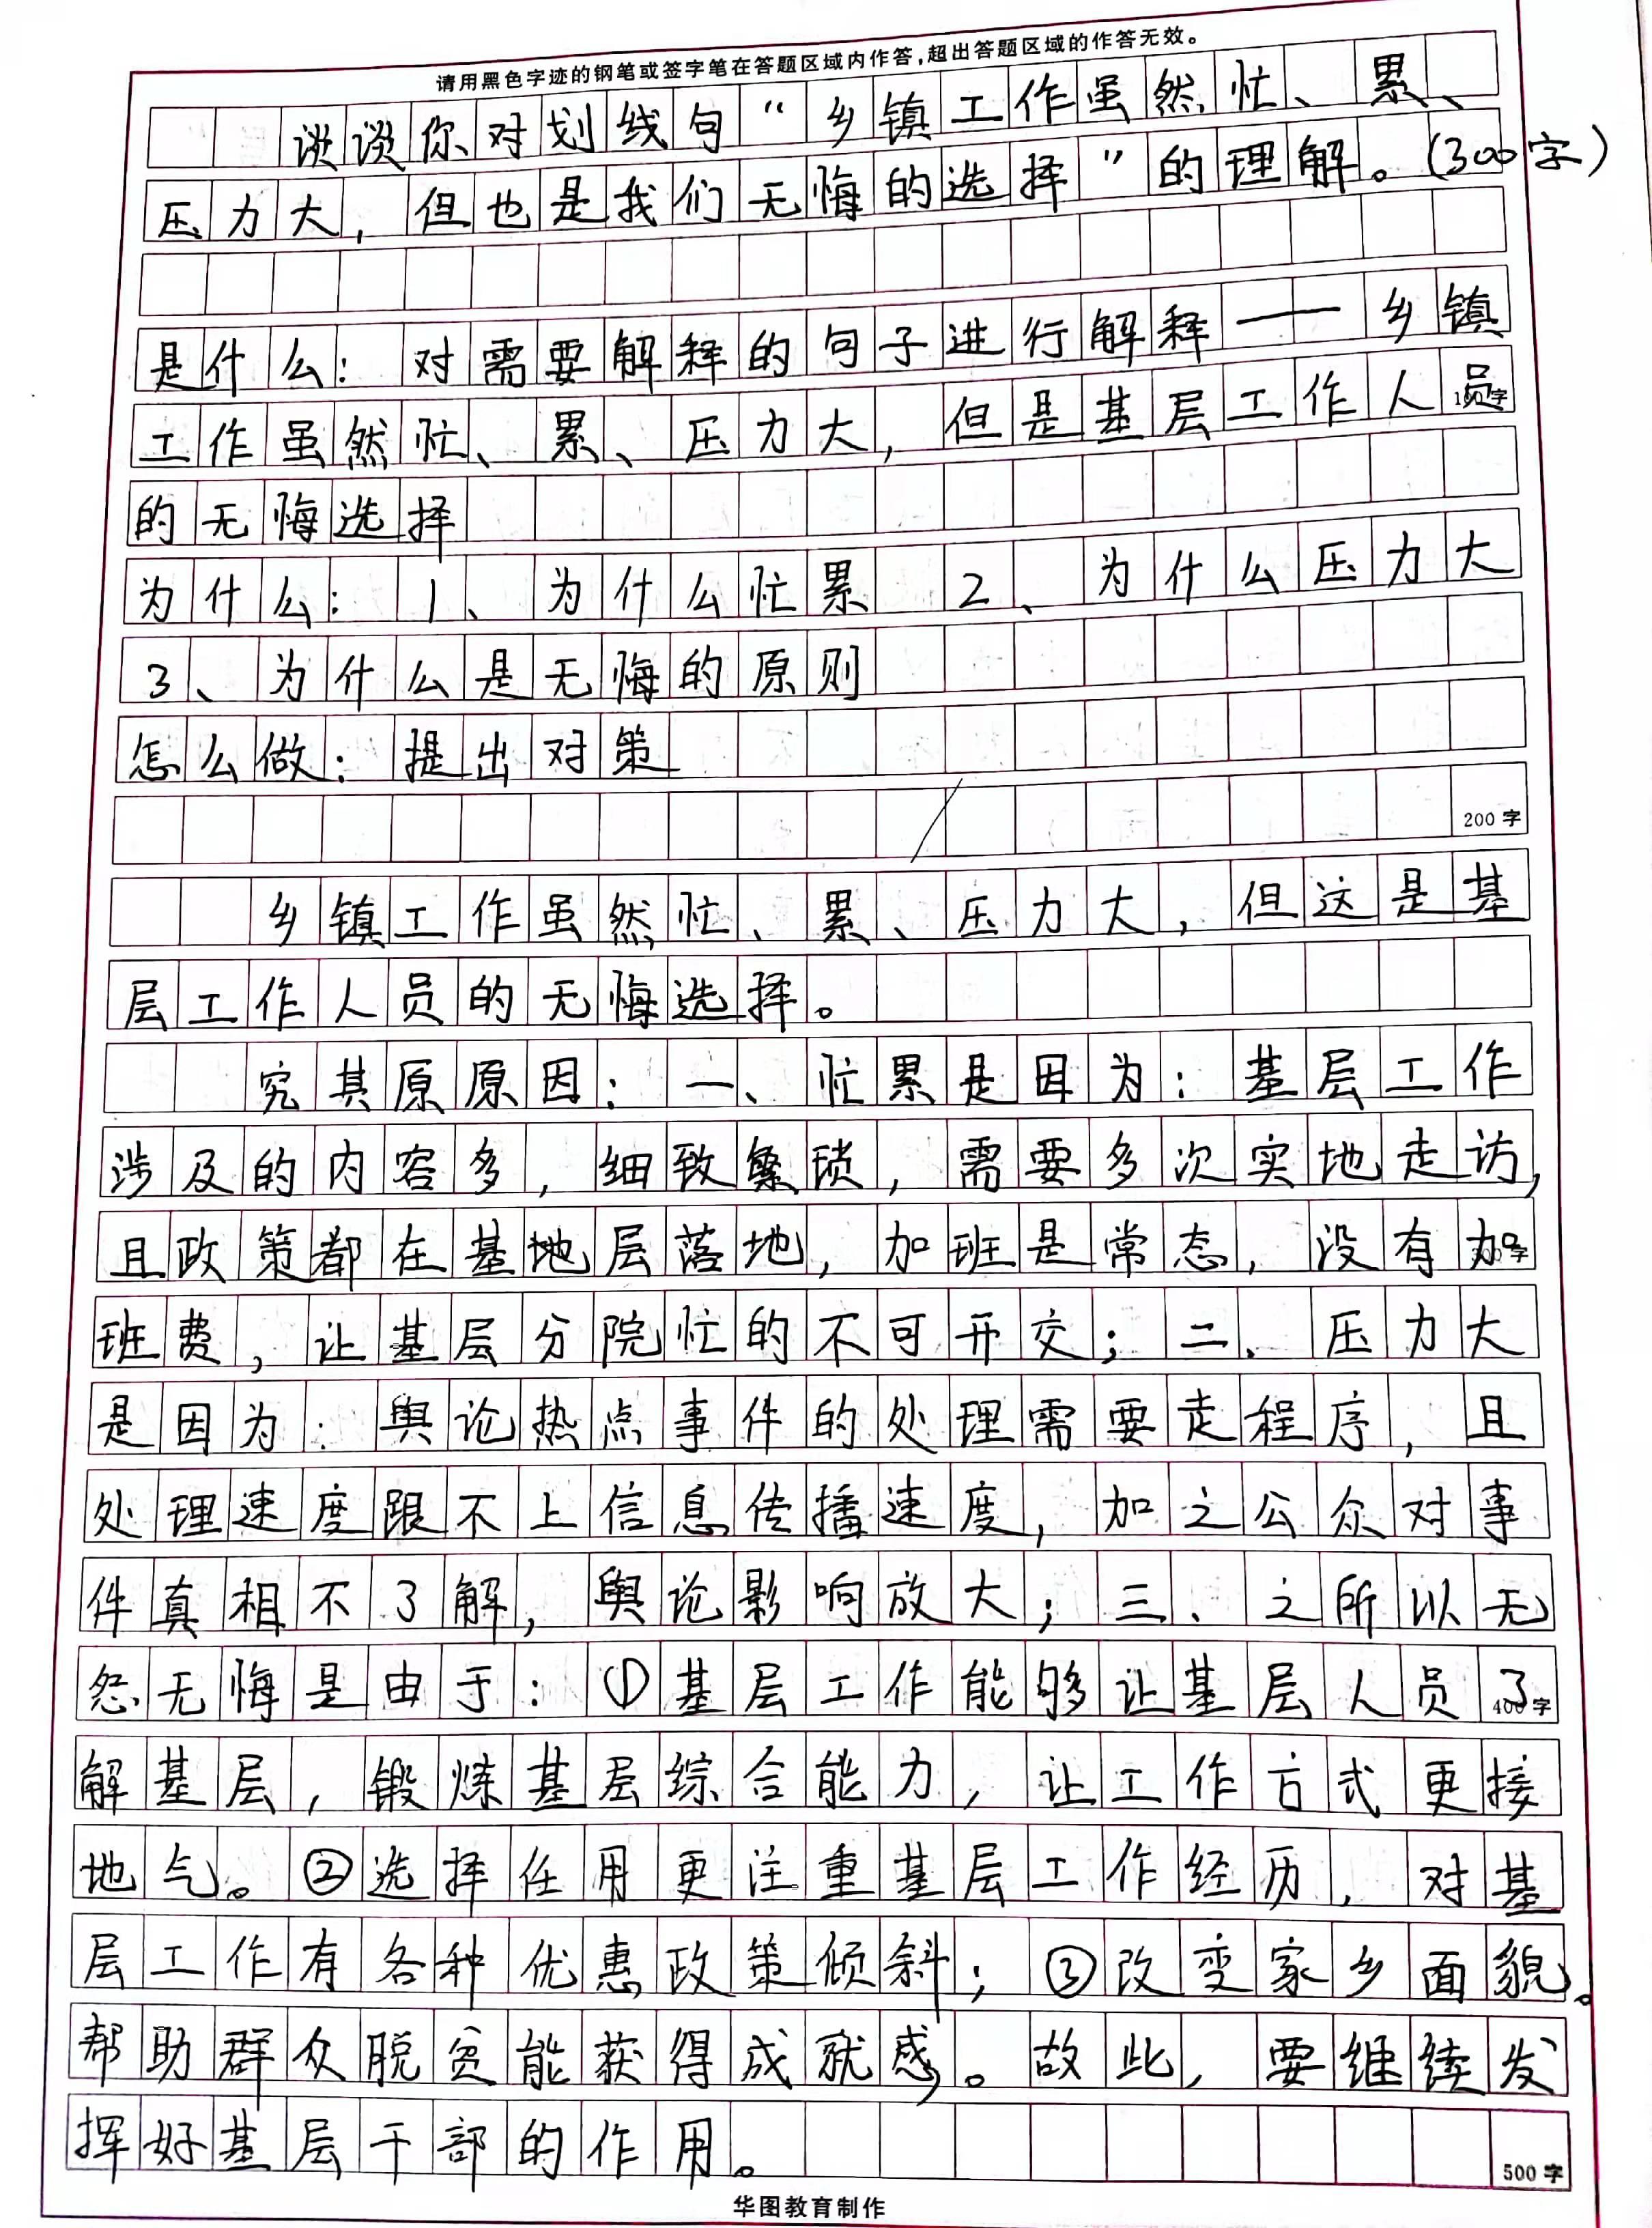 请用黑色字迹的钢笔或签字笔在答题区域内作答,超出答题区域的作答无效。
谈谈你对划线句“乡镇工作虽然忙、累、
压力大,但也是我们无悔的选择”的理解。(300字)
是什么:对需要解释的句子进行解释——乡镇
工作虽然忙、累、压力大,但是基层工作人员
100字
的无悔选择
为什么:1、为什么忙累 2、为什么压力大
3、为什么是无悔的原则
怎么做:提出对策
200字
乡镇工作虽然忙、累、压力大,但这是基
层工作人员的无悔选择。
究其原原因:一、忙累是因为:基层工作
涉及的内容多,细致繁琐,需要多次实地走访,
且政策都在基地层落地,加班是常态,没有加
300字
班费,让基层分院忙的不可开交;二、压力大
是因为:舆论热点事件的处理需要走程序,且
处理速度跟不上信息传播速度,加之公众对事
件真相不了解,舆论影响放大;三、之所以无
怨无悔是由于:①基层工作能够让基层人员了
400字
解基层,锻炼基层综合能力,让工作方式更接
地气。②选择任用更注重基层工作经历,对基
层工作有各种优惠政策倾斜;③改变家乡面貌。
帮助群众脱贫能获得成就感。故此,要继续发
挥好基层干部的作用。
500字
华图教育制作